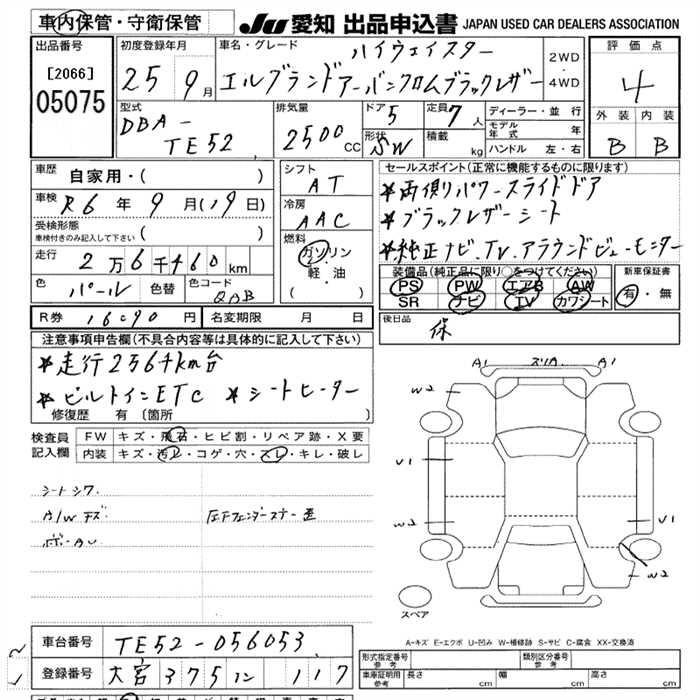 車内保管・守衛保管 JU 愛知 出品申込書 JAPAN USED CAR DEALERS ASSOCIATION
出品番号 初度登録年月 車名・グレード ハイウェイスター 2WD 評価点
[2066] 25 9月 エルグランドアーバンクロムブラックレザー ・ 4
05075 4WD
型式 排気量 ドア 5 定員 7人 ディーラー・並行 外装 内装
DBA- 2500CC モデル年式 年
TE52 形状 SW 積載 kg ハンドル 左・右 B B
車歴 自家用・( ) シフト AT セールスポイント(正常に機能するものに限ります)
車検 R6年9月(19日) 冷房 AAC *両側パワースライドドア
受検形態 *ブラックレザーシート
車検付きのみ記入して下さい ( ) 燃料 *純正ナビ.TV.アラウンドビューモニター
走行 2万6千460km ガソリン
・ 装備品(純正品に限り○をつけてください) 新車保証書
色 パール 色替 色コード QAB 軽・油 PS PW エアB AW 有・無
( ) SR ナビ TV カワシート
R券 16090円 名変期限 月 日 後日品 保
注意事項申告欄(不具合内容等は具体的に記入して下さい)
*走行2万6千km台
*ビルトインETC *シートヒーター
修復歴 有 (箇所 )
A1 A1
W2
検査員 FW キズ・飛石・ヒビ割・リペア跡・X要
記入欄 内装 キズ・汚レ・コゲ・穴・スレ・キレ・破レ
U1
シートシワ
A/Wキズ 左Fフェンダーステー歪 W2 U1
W2
スペア
A-キズ E-エクボ U-凹み W-補修跡 S-サビ C-腐食 XX-交換済
車台番号 TE52-056053 形式指定番号 参考 類別区分番号 参考
登録番号 大宮 375 ニ 117 車庫証明用 参考 長さ cm 幅 cm 高さ cm